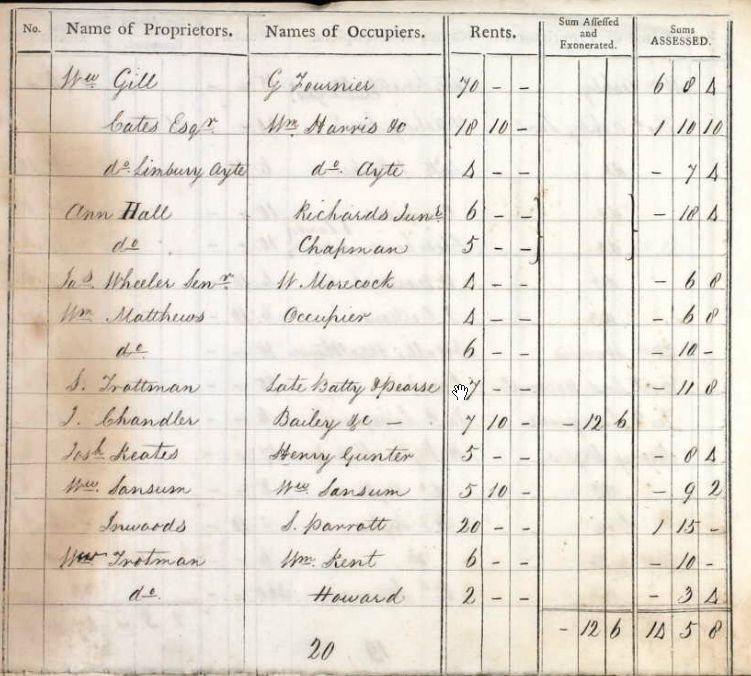 No. Name of Proprietors. Names of Occupiers. Rents. Sum Assessed and Exonerated. Sums ASSESSED.
Wm Gill G Fournier 70 - - 6 8 4
Cates Esqr Wm Harris &c 18 10 - 1 10 10
do Limbury Ayte do Ayte 4 - - - 7 4
Ann Hall Richards Junr 6 - - - 18 4
do Chapman 5 - -
Jas Wheeler Senr W Morecock 4 - - - 6 8
Wm Matthews Occupier 4 - - - 6 8
do 6 - - - 10 -
S. Trottman Late Batty & Pearse 7 - - - 11 8
J. Chandler Bailey &c - 7 10 - - 12 6
Josh Keates Henry Gunter 5 - - - 8 4
Wm Sansum Wm Sansum 5 10 - - 9 2
Inwoods S. Parrott 20 - - 1 15 -
Wm Trotman Wm. Kent 6 - - - 10 -
do Howard 2 - - - 3 4
- 12 6 14 5 8
20